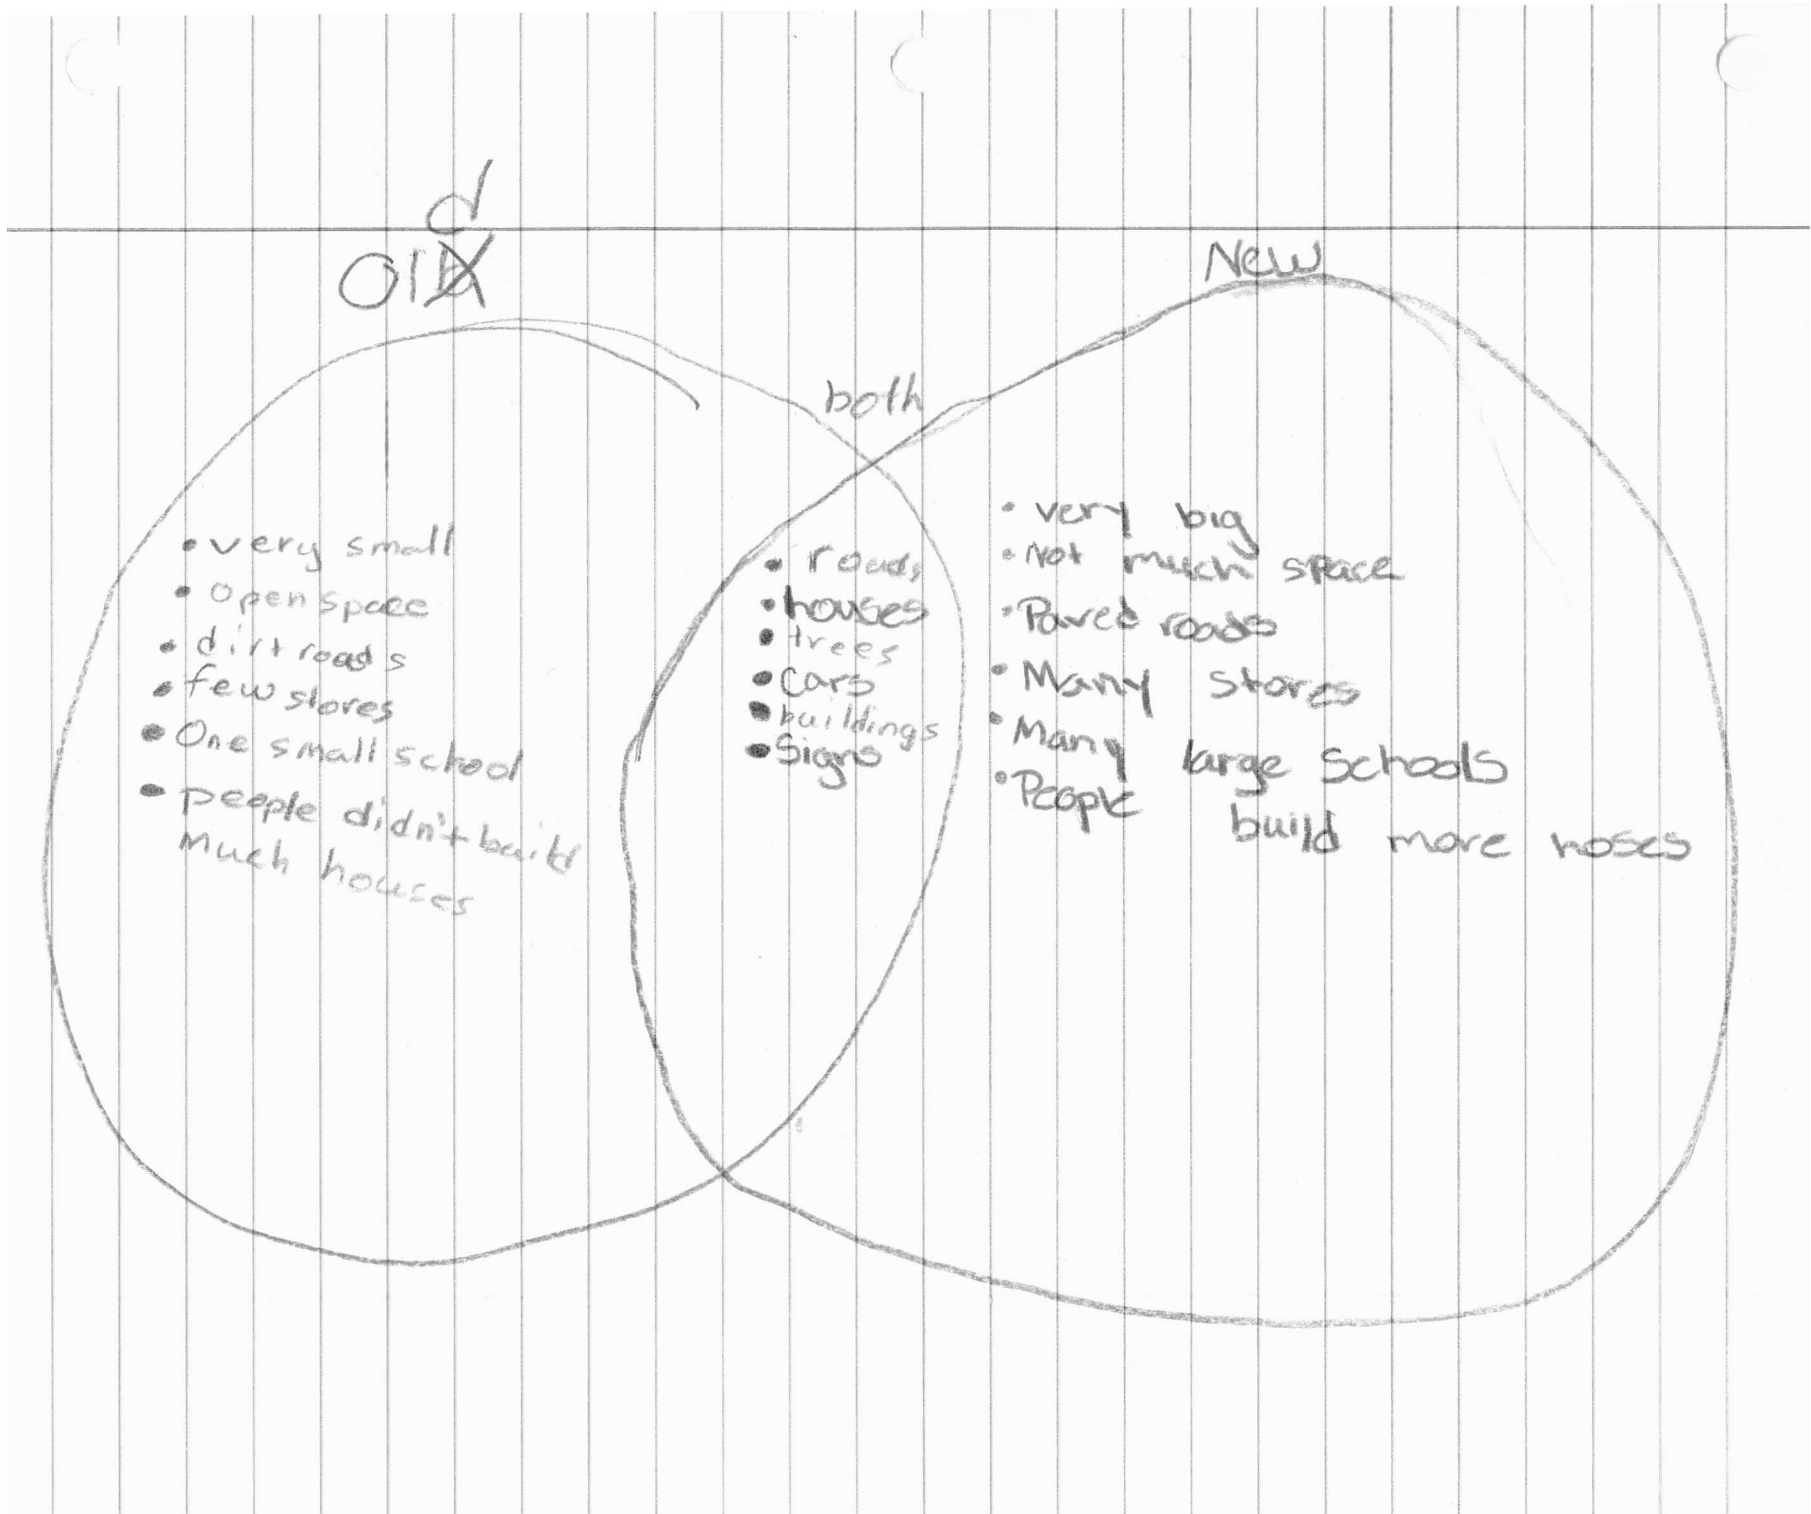 Old
very small
open space
dirt roads
few stores
One small school
people didn't build
Much houses
both
roads
houses
trees
cars
buildings
Signs
New
very big
Not much space
Paved roads
Many stores
Many large Schools
People build more hoses